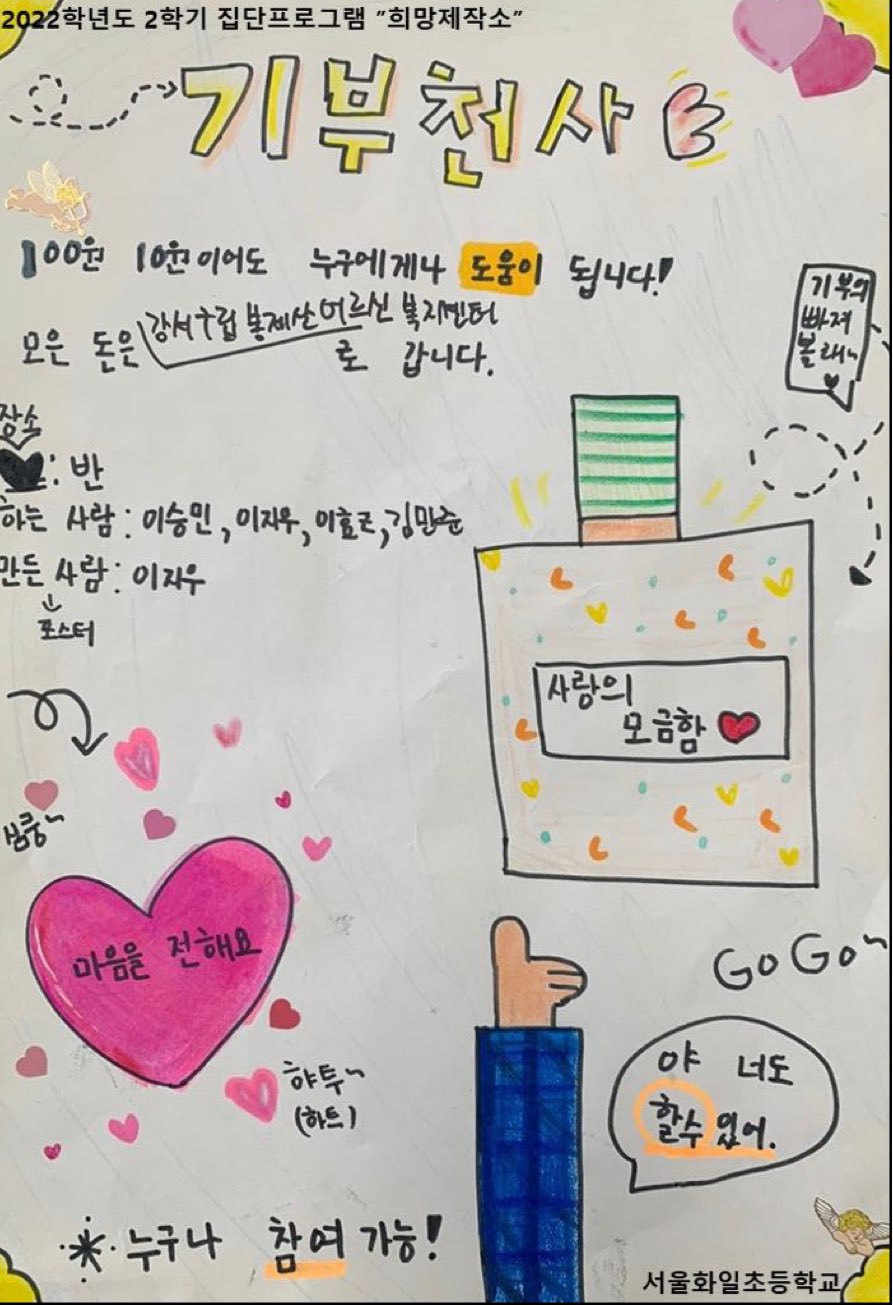 2022학년도 2학기 집단프로그램 "희망제작소"
기부천사
100원 10원이어도 누구에게나 도움이 됩니다!
모은 돈은 강서구립 봉제산 어르신 복지센터
로 갑니다.
기부의
빠져
볼래~
장소
: 반
하는 사람 : 이승민, 이지우, 이효근, 김민준
만든 사람 : 이지우
포스터
사랑의
모금함
심쿵~
마음을 전해요
하투~
(하트)
GO GO~
야 너도
할수 있어.
누구나 참여 가능!
서울화일초등학교